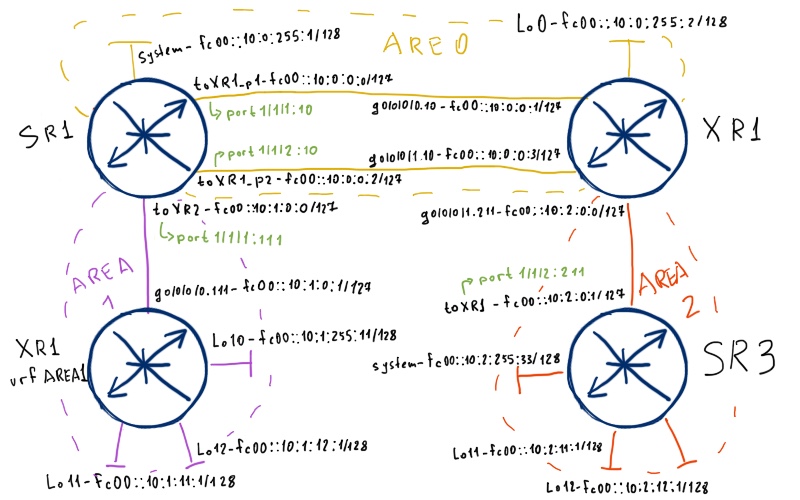 Lo0-fc00::10:0:255:2/128
system-fc00::10:0:255:1/128
AREA 0
toXR1_p1-fc00::10:0:0:0/127
port 1/1/1:10
g0/0/0/0.10-fc00::10:0:0:1/127
SR1
XR1
port 1/1/2:10
g0/0/0/1.10-fc00::10:0:0:3/127
toXR1_p2-fc00::10:0:0:2/127
toXR2-fc00:10:1:0:0/127
port 1/1/1:111
g0/0/0/1.211-fc00::10:2:0:0/127
AREA
1
port 1/1/2:211
g0/0/0/0.111-fc00::10:1:0:1/127
toXR1-fc00::10:2:0:1/127
AREA
2
Lo10-fc00::10:1:255:11/128
XR1
vrf AREA1
system-fc00::10:2:255:33/128
SR3
Lo12-fc00::10:1:12:1/128
Lo11-fc00::10:2:11:1/128
Lo11-fc00::10:1:11:1/128
Lo12-fc00::10:2:12:1/128